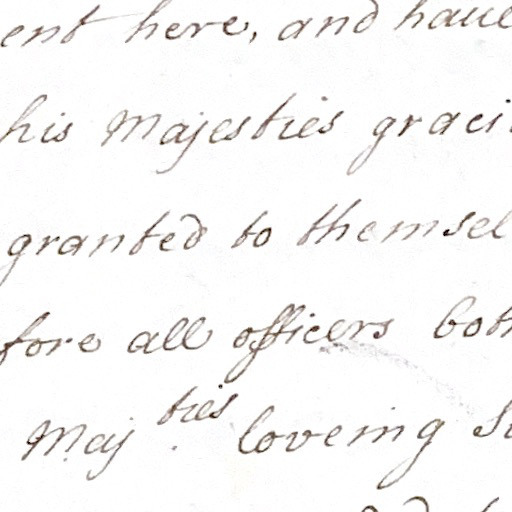 ent here, and haue
his Majesties graci
granted to themsel
fore all officers both
Maj.ties loveing